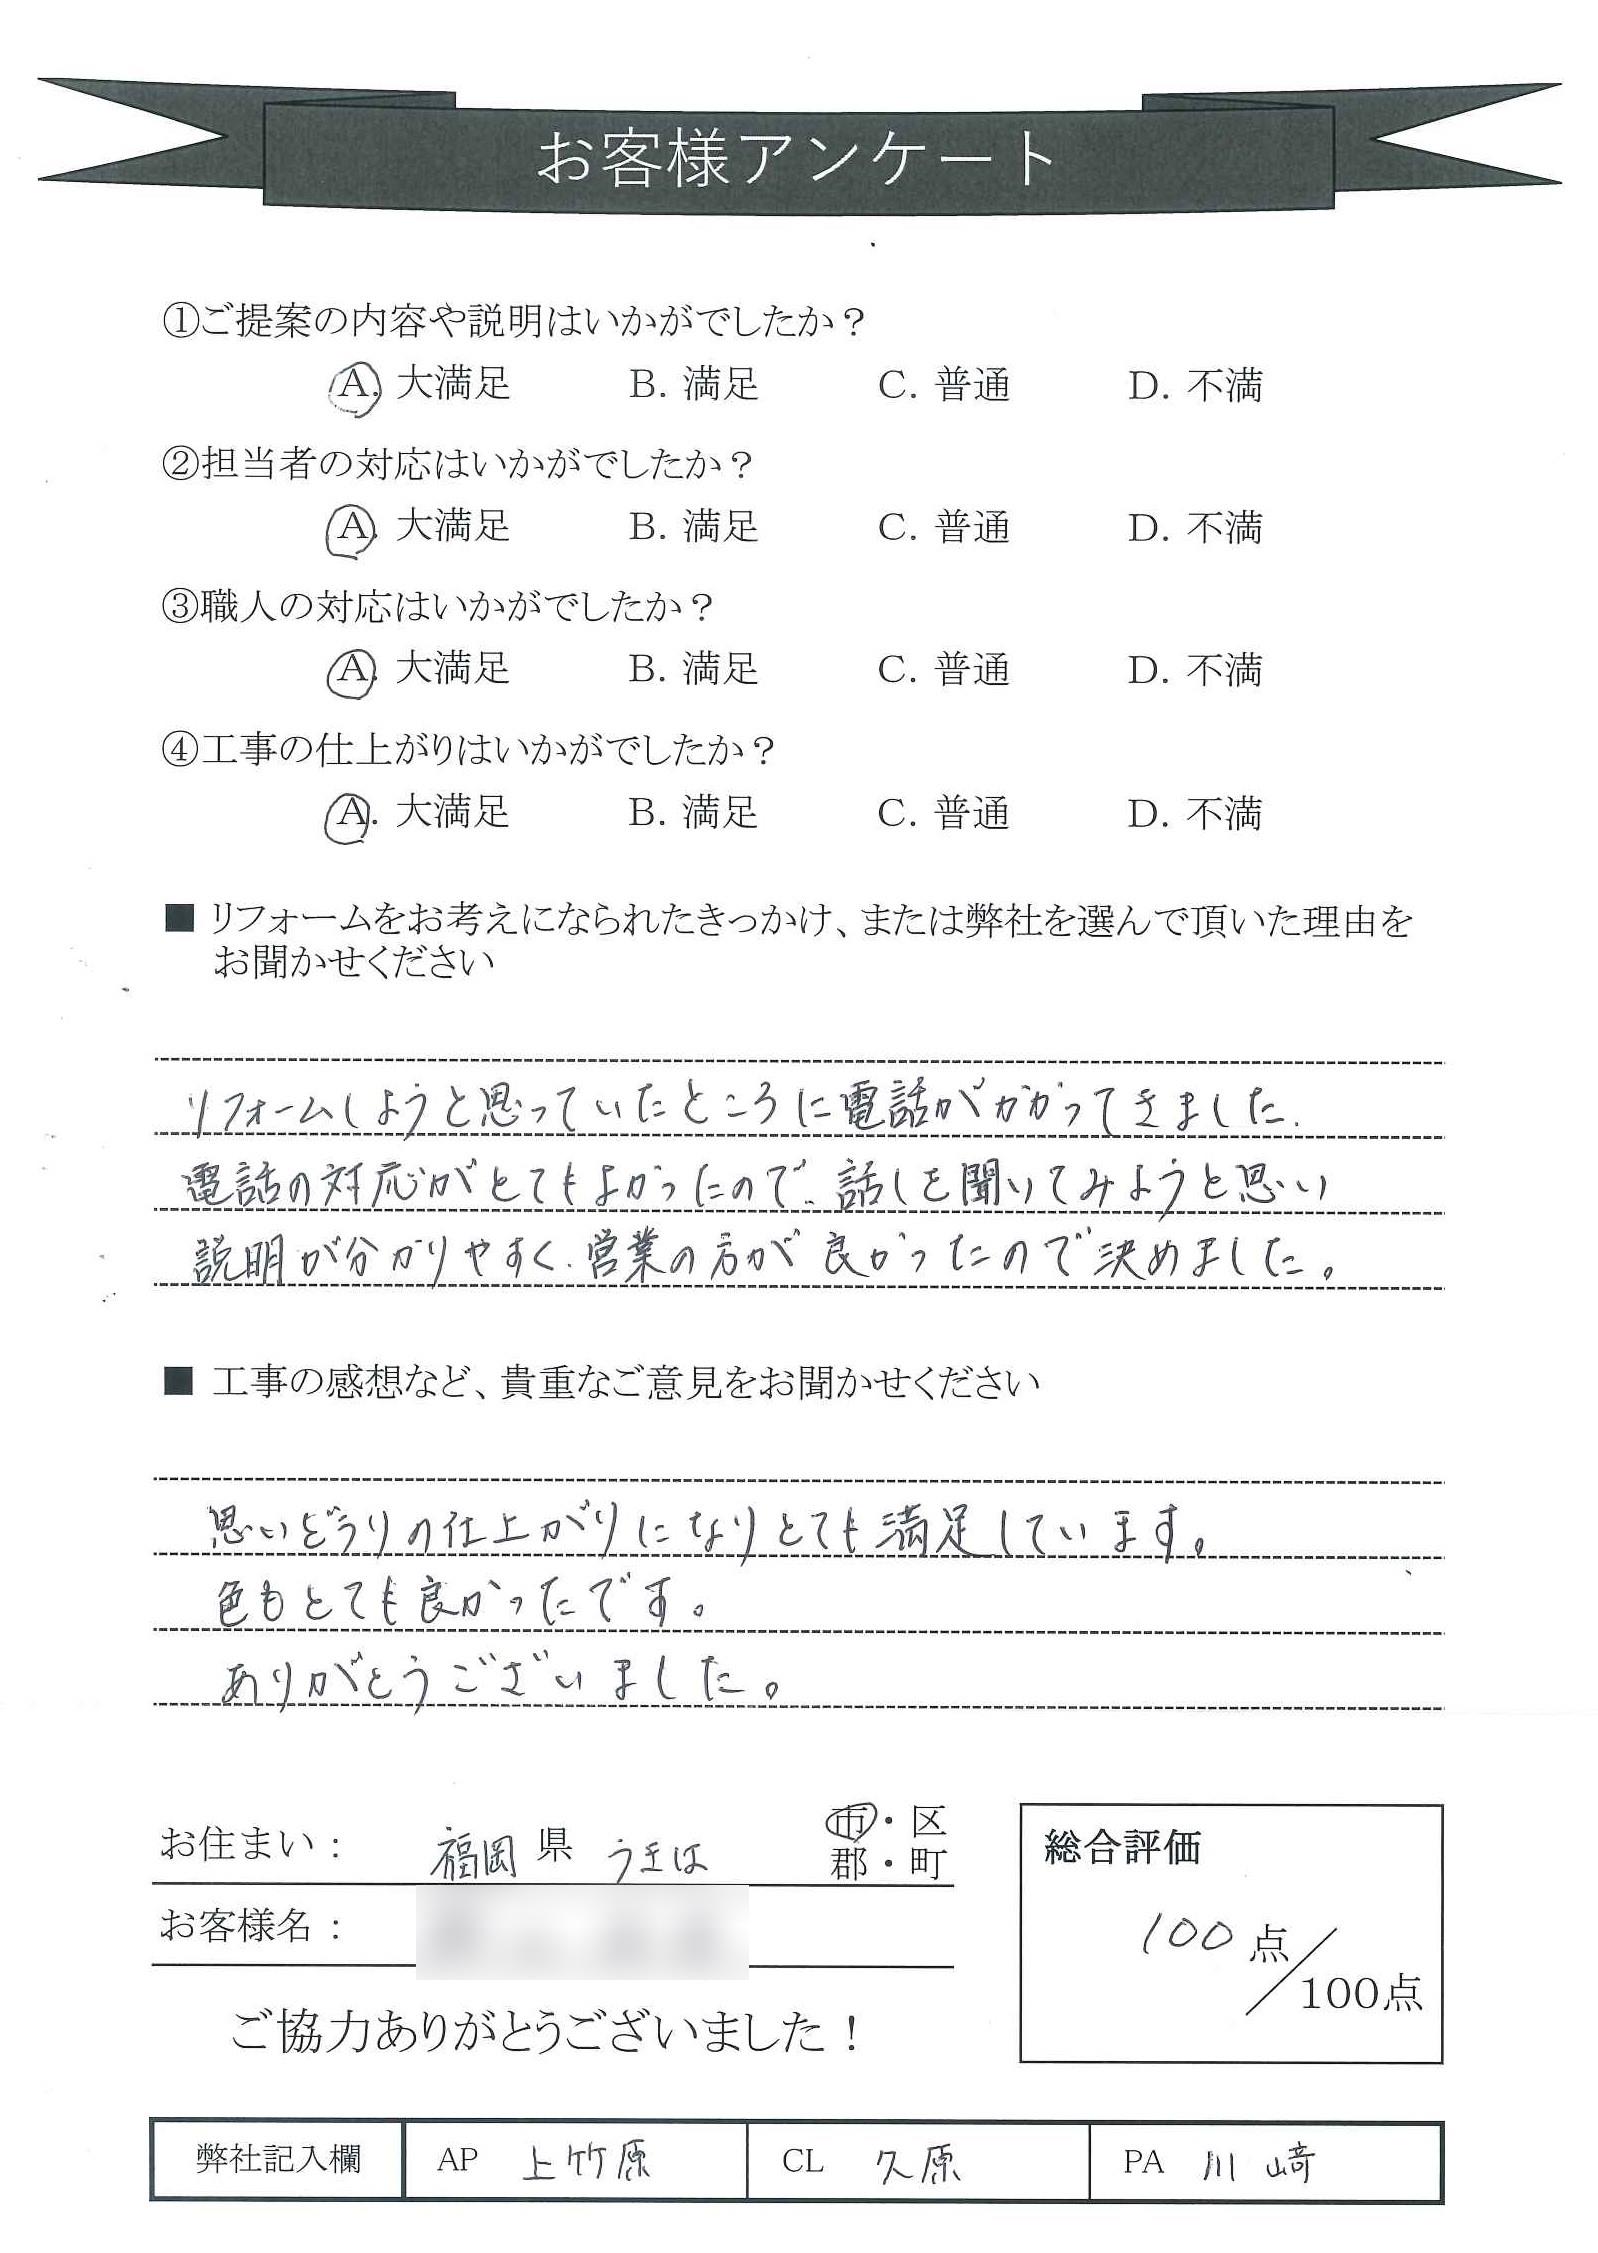 お客様アンケート
①ご提案の内容や説明はいかがでしたか？
A. 大満足 B. 満足 C. 普通 D. 不満
②担当者の対応はいかがでしたか？
A. 大満足 B. 満足 C. 普通 D. 不満
③職人の対応はいかがでしたか？
A. 大満足 B. 満足 C. 普通 D. 不満
④工事の仕上がりはいかがでしたか？
A. 大満足 B. 満足 C. 普通 D. 不満
■ リフォームをお考えになられたきっかけ、または弊社を選んで頂いた理由を
お聞かせください
リフォームしようと思っていたところに電話がかかってきました.
電話の対応がとてもよかったので、話しを聞いてみようと思い
説明が分かりやすく、営業の方が良かったので決めました。
■ 工事の感想など、貴重なご意見をお聞かせください
思いどうりの仕上がりになりとても満足しています。
色もとても良かったです。
ありがとうございました。
お住まい： 福岡 県 うきは 市・区
郡・町
お客様名：
総合評価
100 点／100点
ご協力ありがとうございました！
弊社記入欄 AP 上竹原 CL 久原 PA 川﨑